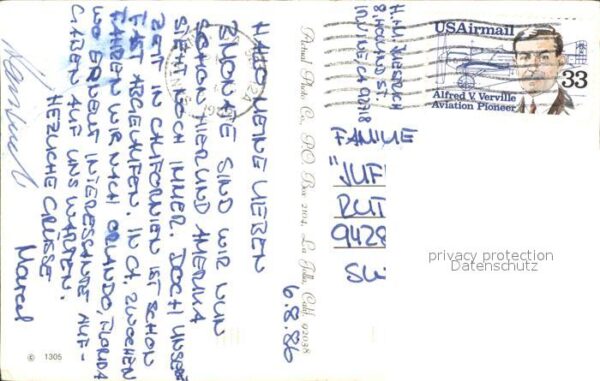 6.8.86
HALLO MEINE LIEBEN
3 MONATE SIND WIR NUN
SCHON HIER UND AMERIKA
STEHT NOCH IMMER. DOCH UNSERE
ZEIT IN CALIFORNIEN IST SCHON
FAST ABGELAUFEN. IN CA. 2 WOCHEN
FAHREN WIR NACH ORLANDO, FLORIDA
WO ERNEUT INTERESSANTE AUF-
GABEN AUF UNS WARTEN.
HERZLICHE GRÜSSE
Marcel
© 1305
Actual Photo Co., P.O. Box 2104, La Jolla, Calif. 92038
8, HOLLAND ST.
IRVINE CA 92718
USAirmail
33
Alfred V. Verville
Aviation Pioneer
FAMILIE
9428
privacy protection
Datenschutz